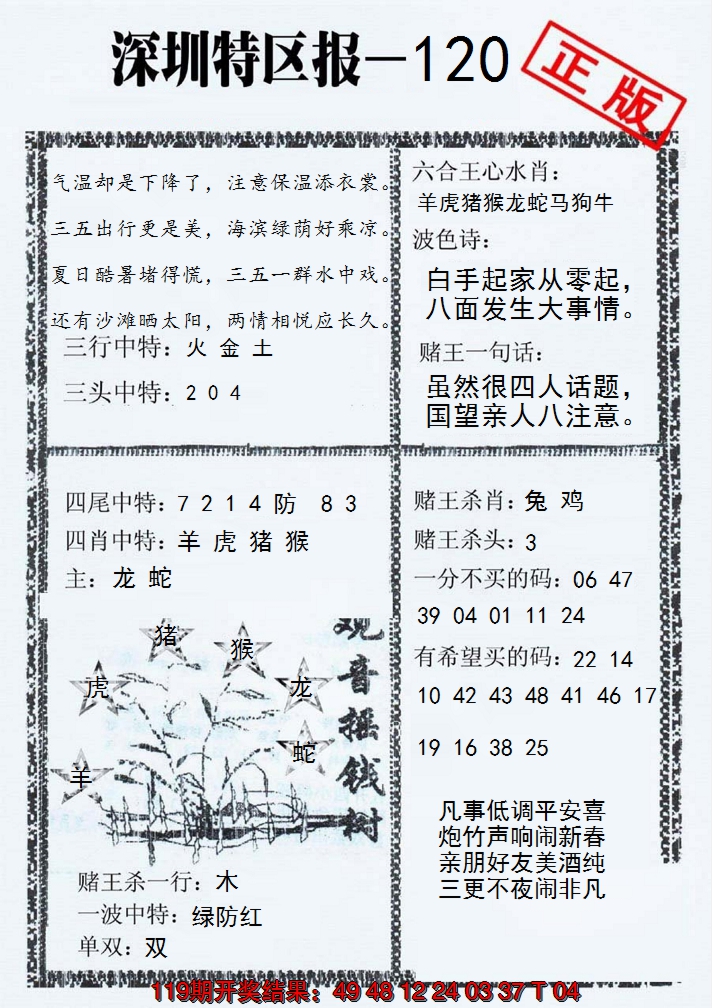 深圳特区报—120
正版
气温却是下降了，注意保温添衣裳。
三五出行更是美，海滨绿荫好乘凉。
夏日酷暑堵得慌，三五一群水中戏。
还有沙滩晒太阳，两情相悦应长久。
三行中特：火 金 土
三头中特：2 0 4
六合王心水肖：
羊虎猪猴龙蛇马狗牛
波色诗：
白手起家从零起，
八面发生大事情。
赌王一句话：
虽然很四人话题，
国望亲人八注意。
四尾中特：7 2 1 4 防 8 3
四肖中特：羊 虎 猪 猴
主：龙 蛇
猪
猴
虎
龙
蛇
羊
观音摇钱树
赌王杀一行：木
一波中特：绿防红
单双：双
赌王杀肖：兔 鸡
赌王杀头：3
一分不买的码：06 47
39 04 01 11 24
有希望买的码：22 14
10 42 43 48 41 46 17
19 16 38 25
凡事低调平安喜
炮竹声响闹新春
亲朋好友美酒纯
三更不夜闹非凡
119期开奖结果：49 48 12 24 03 37 T 04